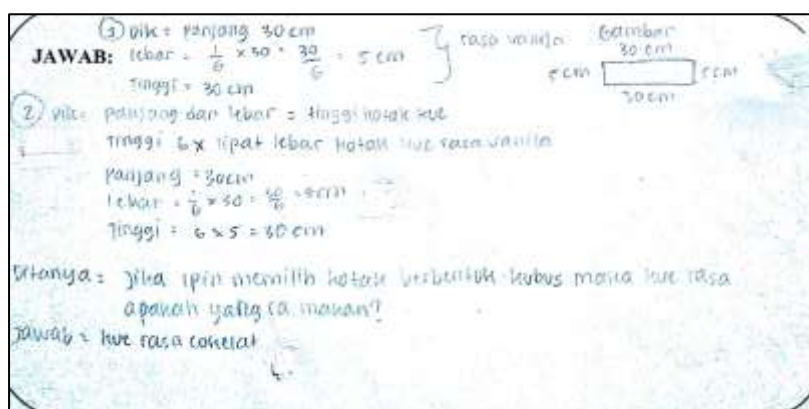 ① Dik = panjang 30 cm
JAWAB: lebar = 1/6 × 30 = 30/6 = 5 cm } rasa vanila
Tinggi = 30 cm
Gambar
30 cm
5 cm 5 cm
30 cm
② Dik = panjang dan lebar = tinggi kotak kue
Tinggi 6x lipat lebar kotak kue rasa vanila
Panjang = 30cm
lebar = 1/6 × 30 = 30/6 = 5cm
Tinggi = 6 × 5 = 30 cm
Ditanya = Jika ipin memilih kotak berbentuk kubus maka kue rasa
apakah yang ia makan?
Jawab = kue rasa cokelat